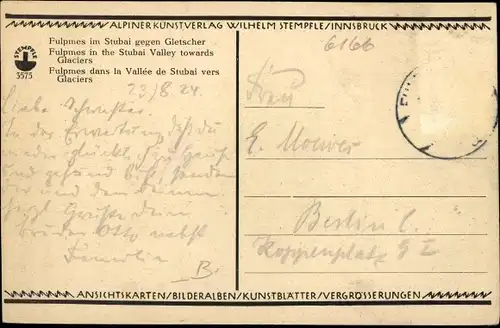 ALPINER KUNSTVERLAG WILHELM STEMPFLE/INNSBRUCK
STEMPFLE
3575
Fulpmes im Stubai gegen Gletscher
Fulpmes in the Stubai Valley towards
Glaciers
Fulpmes dans la Vallée de Stubai vers
Glaciers
6166
23/8.24.
Liebe Schwester.
In der Erwartung daß du
wieder glückl. zu Hause
und gesund b.
dir und den
herzl. Grüße dein
Bruder Otto nebst
Familie
B.
Frau
E.
Berlin C.
Koppenplatz 9 I
ANSICHTSKARTEN/BILDERALBEN/KUNSTBLÄTTER/VERGRÖSSERUNGEN